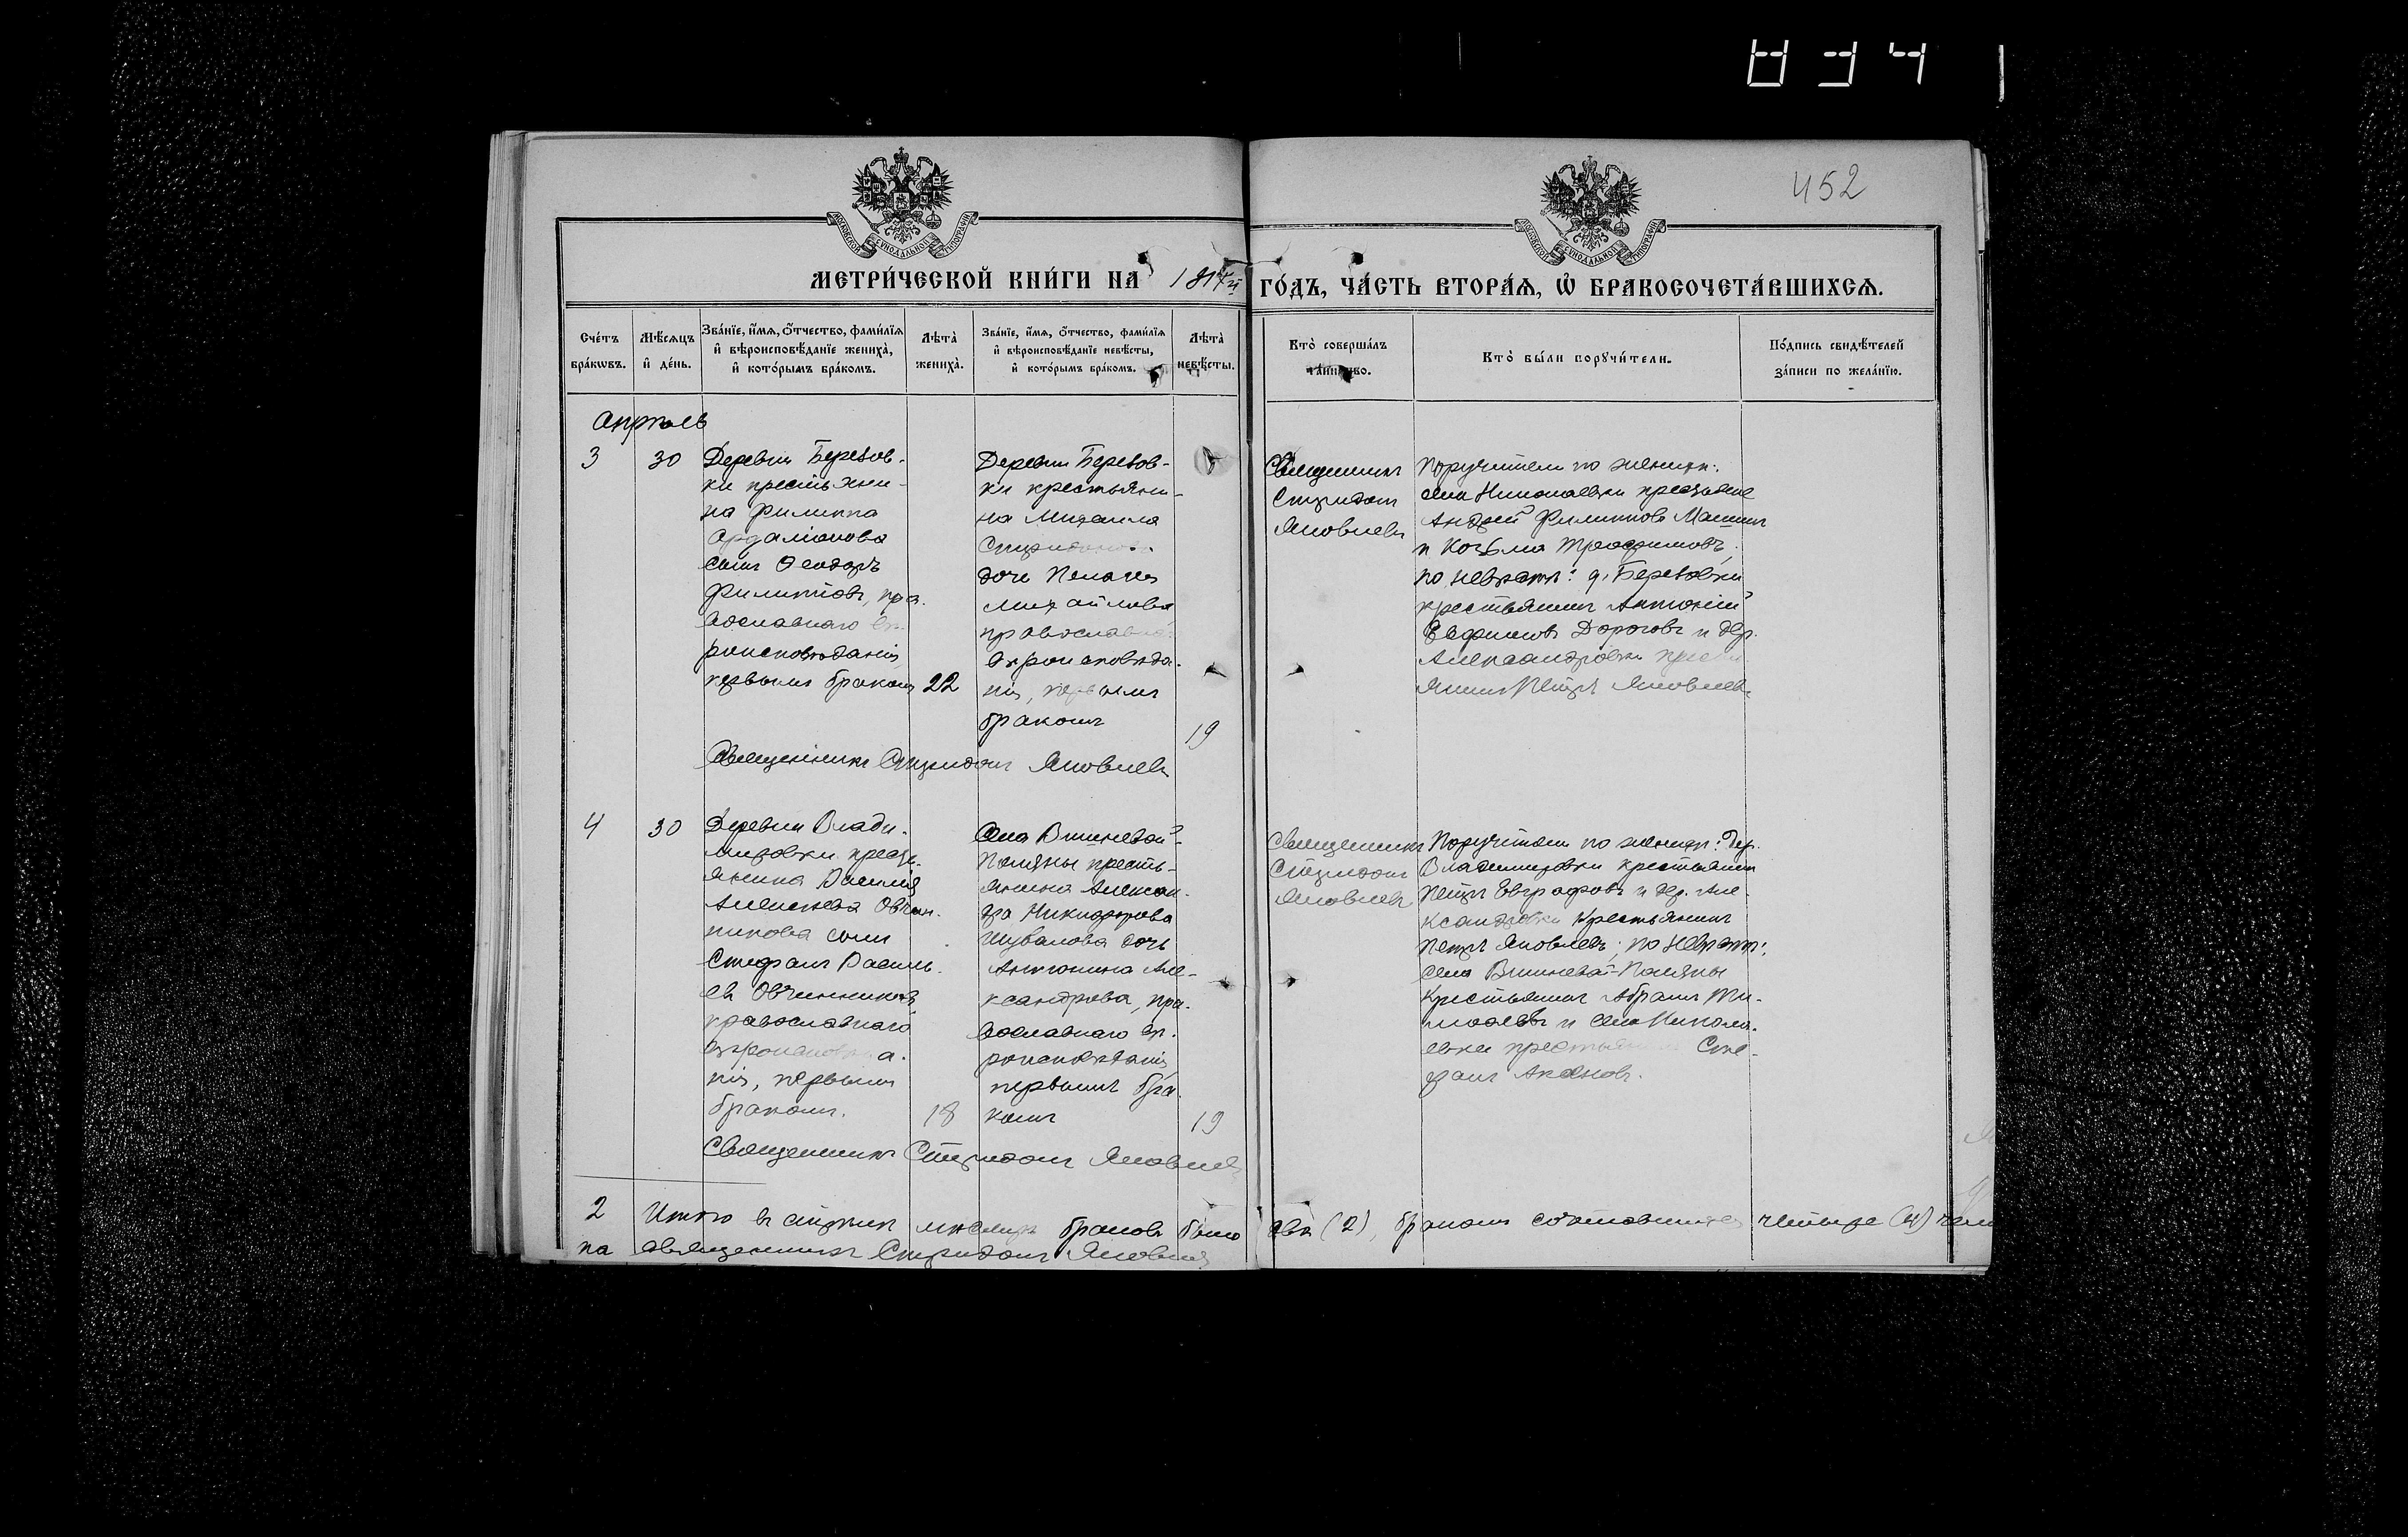 452
МОСКОВСКОЙ СѴНОДАЛЬНОЙ ТИПОГРАФІИ
МОСКОВСКОЙ СѴНОДАЛЬНОЙ ТИПОГРАФІИ
МЕТРИ́ЧЕСКОЙ КНИ́ГИ НА
ГО́ДЪ, ЧА́СТЬ ВТОРА́Ѧ, Ѡ҆ БРАКОСОЧЕТА́ВШИХСѦ.
Сче́тъ бра́кѡвъ.
Мѣ́сѧцъ и҆ де́нь.
Зва́нїе, и҆́мѧ, ѻ҆́тчество, фами́лїѧ и҆ вѣроисповѣ́данїе жениха̀, и҆ кото́рымъ бра́комъ.
Лѣ́та̀ жениха̀.
Зва́нїе, и҆́мѧ, ѻ҆́тчество, фами́лїѧ и҆ вѣроисповѣ́данїе невѣ́сты, и҆ кото́рымъ бра́комъ.
Лѣ́та̀ невѣ́сты.
Кто̀ соверша́лъ та́инство.
Кто̀ бы́ли порꙋчи́тели.
По́дпись свидѣ́телей за́писи по жела́нїю.
Апрѣль
3
30
Деревни Березов-
ки крестьяни-
на Филиппа
Ардаліонова
сынъ Ѳеодоръ
Филипповъ, пра-
вославнаго вѣ-
роисповѣданія,
первымъ бракомъ
22
Деревни Березов-
ки крестьяни-
на Михаила
Спиридонова
дочь Пелагія
Михайлова
православна
вѣроисповѣда-
нія, первымъ
бракомъ
19
Священникъ
Спиридонъ
Яковлевъ
Поручители по женихѣ:
села Николаевки крестьяне
Андрей Филипповъ
и Козьма Трофимовъ;
по невѣстѣ: д. Березовки
крестьянинъ Антоній
Евфимовъ Дороговъ и дер.
Александровки кресть
янинъ Петръ Яковлевъ
Священникъ Спиридонъ Яковлевъ
4
30
Деревни Влади-
мировки кресть-
янина Василія
Алексѣева Овчин-
никова сынъ
Стефанъ Василь-
евъ Овчинниковъ,
православнаго
вѣроисповѣда-
нія, первымъ
бракомъ.
18
Села Вишневой-
Поляны кресть-
янина Алексан-
дра Никифорова
Шувалова дочь
Антонина Але-
ксандрова, пра-
вославнаго вѣ-
роисповѣданія,
первымъ бра-
комъ
19
Священникъ
Спиридонъ
Яковлевъ
Поручители по женихѣ: дер.
Владимировки крестьянинъ
Петръ Евграфовъ и дер. Але
ксандровки крестьянинъ
Петръ Яковлевъ; по невѣстѣ:
села Вишневой-Поляны
крестьянинъ Абрамъ Ти-
моѳеевъ и села Никола-
евки крестьянинъ Сте-
фанъ
Священникъ Спиридонъ Яковлевъ
2 Итого въ апрѣлѣ мѣсяцѣ браковъ было два (2), бракомъ сочетавшихся четыре (4) чело
ка Священникъ Спиридонъ Яковлевъ